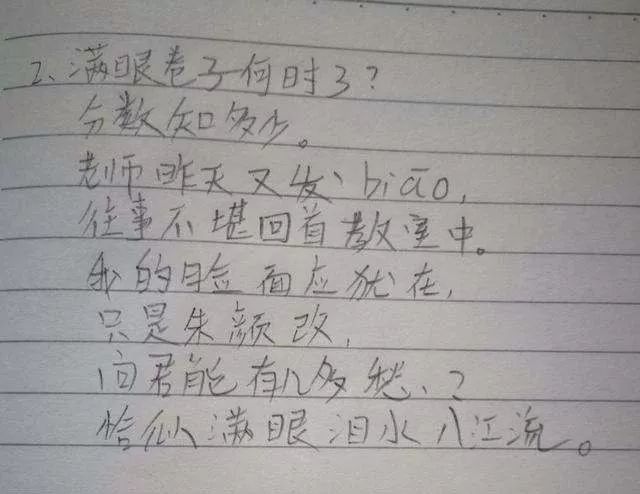 2、满眼卷子何时了?
分数知多少。
老师昨天又发biāo,
往事不堪回首教室中。
我的脸面应犹在,
只是朱颜改,
问君能有几多愁、?
恰似满眼泪水八江流。